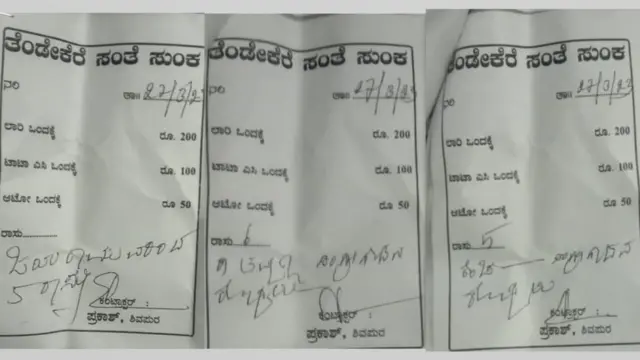 ತೆಂಡೇಕೆರೆ ಸಂತೆ ಸುಂಕ
ನಂ ತಾ॥ 27/3/23
ಲಾರಿ ಒಂದಕ್ಕೆ ರೂ. 200
ಟಾಟಾ ಎಸಿ ಒಂದಕ್ಕೆ ರೂ. 100
ಆಟೋ ಒಂದಕ್ಕೆ ರೂ 50
ರಾಸು
ಕಂಟ್ರಾಕ್ಟರ್ :
ಪ್ರಕಾಶ್, ಶಿವಪುರ
ತೆಂಡೇಕೆರೆ ಸಂತೆ ಸುಂಕ
ನಂ ತಾ॥ 27/3/23
ಲಾರಿ ಒಂದಕ್ಕೆ ರೂ. 200
ಟಾಟಾ ಎಸಿ ಒಂದಕ್ಕೆ ರೂ. 100
ಆಟೋ ಒಂದಕ್ಕೆ ರೂ 50
ರಾಸು 6
ಕಂಟ್ರಾಕ್ಟರ್ :
ಪ್ರಕಾಶ್, ಶಿವಪುರ
ತೆಂಡೇಕೆರೆ ಸಂತೆ ಸುಂಕ
ನಂ ತಾ॥ 27/3/23
ಲಾರಿ ಒಂದಕ್ಕೆ ರೂ. 200
ಟಾಟಾ ಎಸಿ ಒಂದಕ್ಕೆ ರೂ. 100
ಆಟೋ ಒಂದಕ್ಕೆ ರೂ 50
ರಾಸು 5
ಕಂಟ್ರಾಕ್ಟರ್ :
ಪ್ರಕಾಶ್, ಶಿವಪುರ